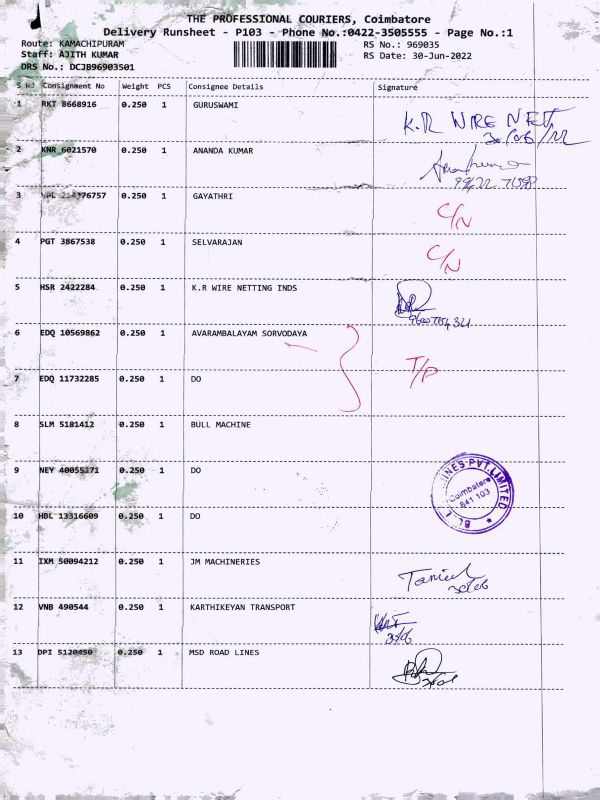 THE PROFESSIONAL COURIERS, Coimbatore
Delivery Runsheet - P103 - Phone No.:0422-3505555 - Page No.:1
Route: KAMACHIPURAM RS No.: 969035
Staff: AJITH KUMAR RS Date: 30-Jun-2022
DRS No.: DCJB96903501
S No Consignment No Weight PCS Consignee Details Signature
1 RKT 8668916 0.250 1 GURUSWAMI
K.R WIRE NETT
30/06/22
2 KNR 6021570 0.250 1 ANANDA KUMAR
3 0.250 1 GAYATHRI C/N
4 PGT 3867538 0.250 1 SELVARAJAN C/N
5 HSR 2422284 0.250 1 K.R WIRE NETTING INDS
6 EDQ 10569862 0.250 1 AVARAMBALAYAM SORVODAYA
T/P
7 EDQ 11732285 0.250 1 DO
8 SLM 5181412 0.250 1 BULL MACHINE
9 NEY 40055171 0.250 1 DO
INES PVT.LIMITED
Coimbatore
641 103
10 HBL 13316609 0.250 1 DO
11 IXM 50094212 0.250 1 JM MACHINERIES
30/06
12 VNB 490544 0.250 1 KARTHIKEYAN TRANSPORT
30/06
13 DPI 5120450 0.250 1 MSD ROAD LINES